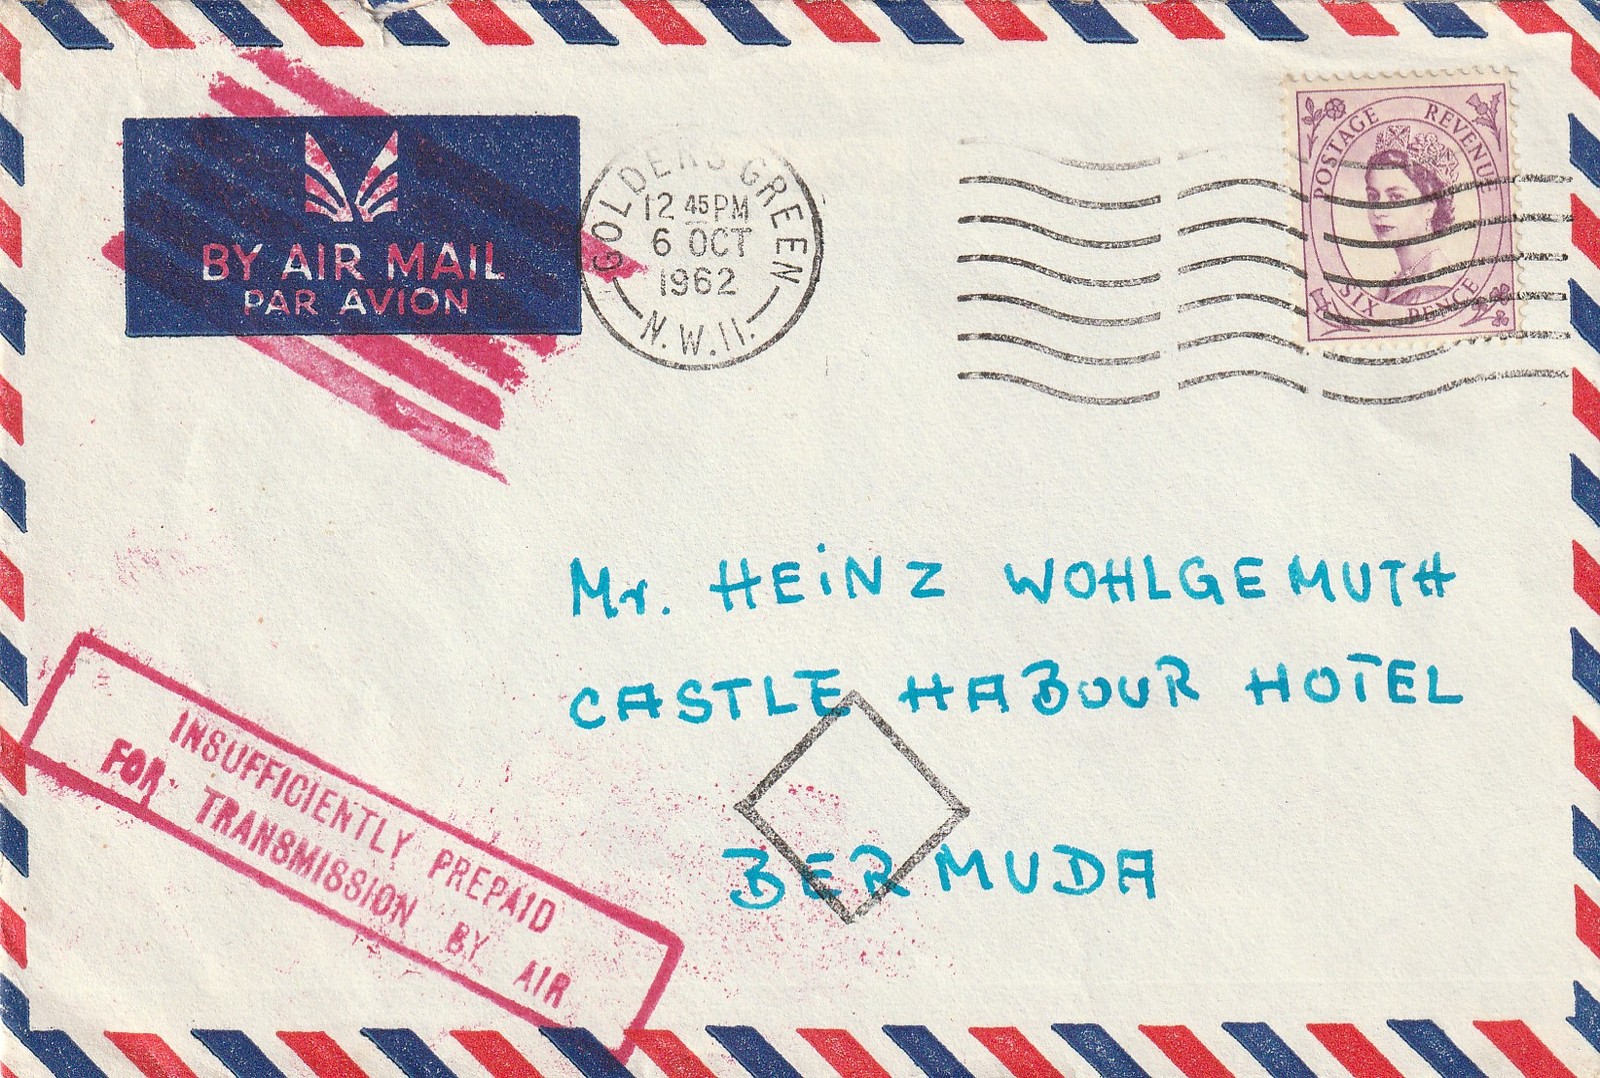 BY AIR MAIL
PAR AVION
GOLDERS GREEN
12 45 PM
6 OCT
1962
N.W.11.
POSTAGE REVENUE
SIX PENCE
Mr. HEiNZ WOHLGEMUTH
CASTLE HABOUR HOTEL
BERMUDA
INSUFFICIENTLY PREPAID
FOR TRANSMISSION BY AIR